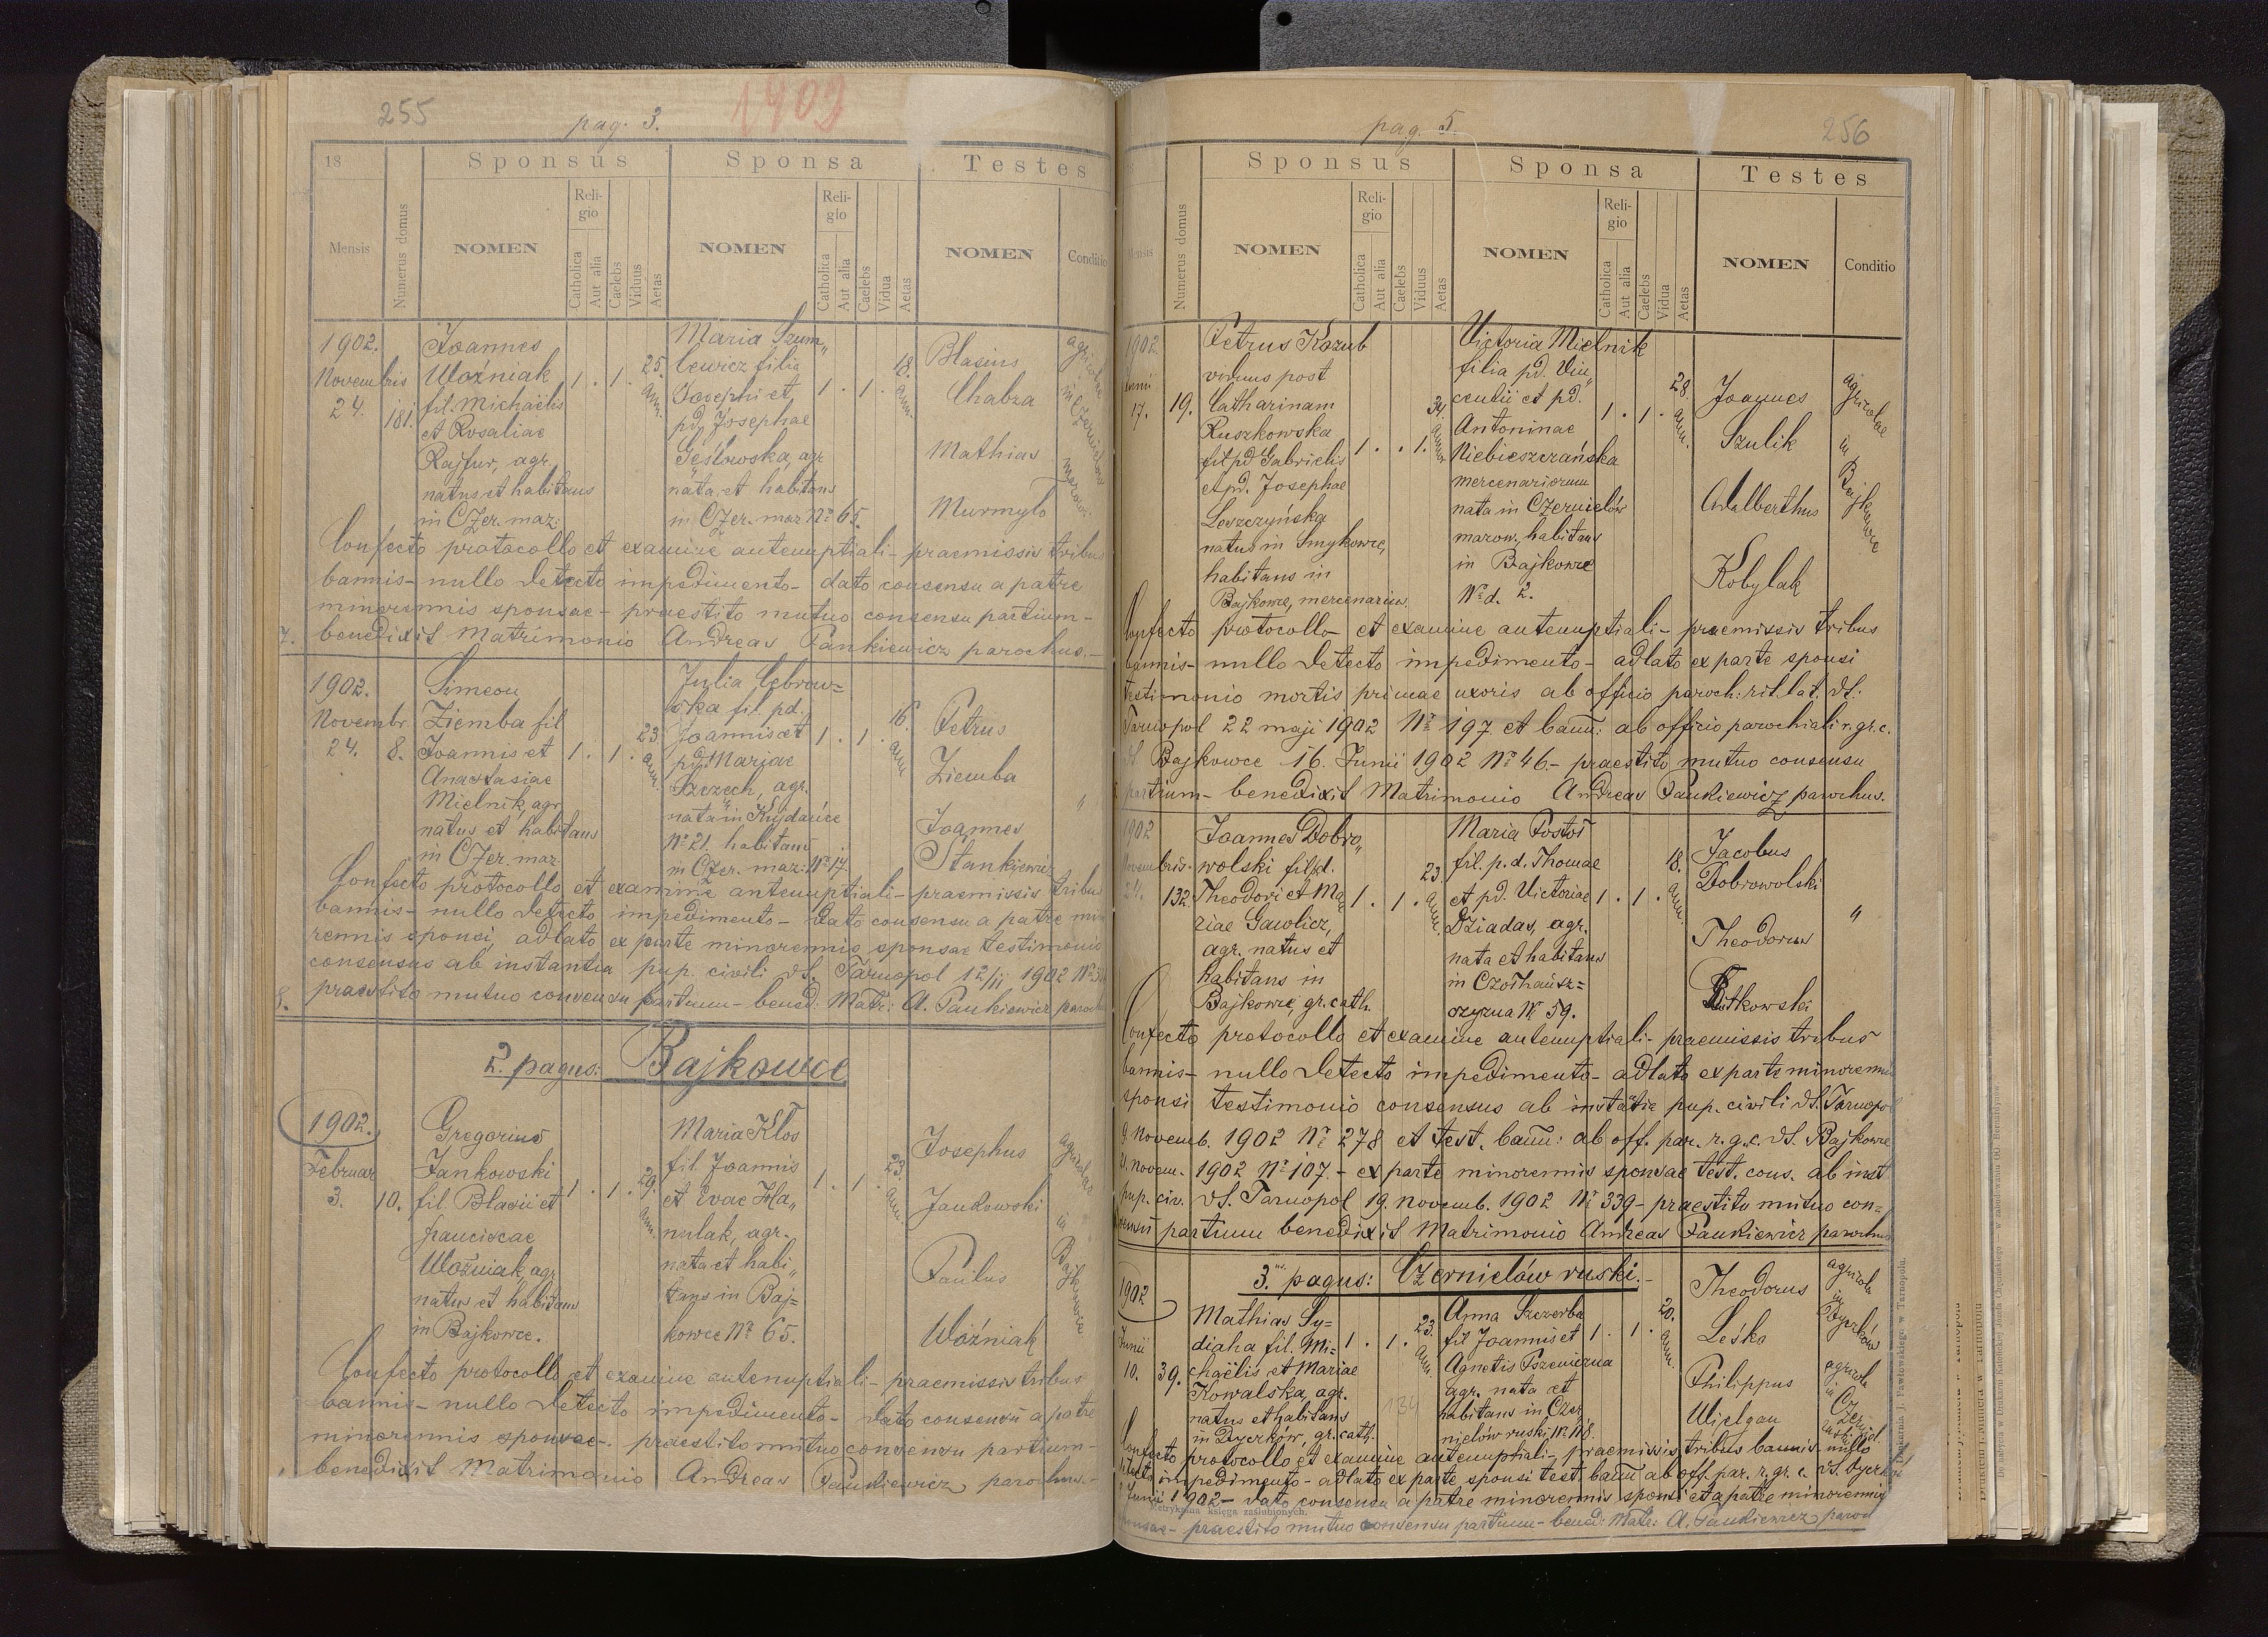 255
pag. 3.
1902
18
Sponsus
Sponsa
Testes
Mensis
Numerus domus
NOMEN
Religio
Catholica
Aut alia
Caelebs
Viduus
Aetas
NOMEN
Religio
Catholica
Aut alia
Caelebs
Vidua
Aetas
NOMEN
Conditio
1902.
Novembris
24.
181.
Joannes
Woźniak
fil. Michaëlis
et Rosaliae
Rajfur, agr.
natus et habitans
in CZer. maz:
1 . 1 .
25.
ann.
Maria Szum„
lewicz filia
Josephi et
pd. Josephae
Gęsłowska, agr
nata et habitans
in CZer. maz No 65.
1 . 1 .
18.
ann.
Blasius
Chabza
Mathias
Murmyło
agricolae
in
CZernielow
mazow.
Confecto protocollo et examine antenuptiali - praemissis tribus
bannis - nullo detecto impedimento - dato consensu a patre
minorennis sponsae - praestito mutuo consensu partium -
7. benedixit Matrimonio Andreas Pankiewicz parochus. -
1902.
Novembr.
24.
8.
Simeon
Ziemba fil
Joannis et
Anastasiae
Mielnik, agr
natus et habitans
in CZer. maz.
1 . 1 .
23
ann.
Julia Cebrow=
ska fil. pd.
Joannis et
pd. Mariae
Szczech, agr.
nata in Kujdańce
No 21. habitans
in CZer. maz: No 17.
1 . 1 .
16.
ann
Petrus
Ziemba
Joannes
Stankiewicz
"
Confecto protocollo et examine antenuptiali - praemissis tribus
bannis - nullo detecto impedimento - dato consensu a patre mi
rennis sponsi, adlato ex parte minorennis sponsae testimonio
consensus ab instantia pup. civili dS. Tarnopol 12/11 1902 No
8. praestito mutuo consensu partium - bened: Matr: A. Pankiewicz paroch
2. pagus: Bajkowce
1902.
Februar
3.
10.
Gregorius
Jankowski
fil. Blasii et
Franciscae
Woźniak, agr
natus et habitans
in Bajkowce.
1 . 1 .
29.
ann.
Maria Kłos
fil. Joannis
et Evae Ha„
nulak, agr.
nata et habi„
tans in Baj=
kowce No 65.
1 . 1 .
23.
ann.
Josephus
Jankowski
Paulus
Woźniak
agricolae
in
Bajkowce
Confecto protocollo et examine antenuptiali - praemissis tribus
bannis - nullo detecto impedimento - dato consensu a patre
minorennis sponsae -. praestito mutuo consensu partium -
benedixit Matrimonio Andreas Pankiewicz parochus. -
pag. 5.
256
Sponsus
Sponsa
Testes
Mensis
Numerus domus
NOMEN
Religio
Catholica
Aut alia
Caelebs
Viduus
Aetas
NOMEN
Religio
Catholica
Aut alia
Caelebs
Vidua
Aetas
NOMEN
Conditio
1902.
Junii
17.
19.
Petrus Kozub
viduus post
Catharinam
Ruszkowska
fil pd Gabrielis
et pd. Josephae
Leszczyńska
natus in Smykowce,
habitans in
Bajkowce, mercenarius.
1 . . 1.
34.
Victoria Mielnik
filia pd. Vin„
centii et pd.
Antoninae
Niebieszczańska
mercenariorum
nata in CZernielów
mazow. habitans
in Bajkowce
No d. 2.
1 . 1 .
28.
ann.
Joannes
Szulik
Adalberthus
Kobylak
agricolae
in
Bajkowce
Confecto protocollo - et examine antenuptiali - praemissis tribus
bannis - nullo detecto impedimento - adlato ex parte sponsi
testimonio mortis primae uxoris ab officio paroch: rit. lat. dS:
Tarnopol 22 maji 1902 No 197 et bann: ab officio parochiali r. gr. c.
dS Bajkowce 16. Junii 1902 No 46. - praestito mutuo consensu
partium - benedixit Matrimonio Andreas Pankiewicz parochus.
1902
Novembris.
24.
132.
Joannes Dobro„
wolski fil. pd.
Theodori et Ma
riae Gawlicz,
agr. natus et
habitans in
Bajkowce, gr. cath.
1 . 1 .
23.
ann.
Maria Postoł
fil. p.d. Thomae
et pd. Victoriae
Dziadas, agr.
nata et habitans
in Czołhańsz=
czyzna No 59.
1 . 1 .
18.
ann.
Jacobus
Dobrowolski
Theodorus
Rutkowski
"
Confecto protocollo et examine antenuptiali - praemissis tribus
bannis - nullo detecto impedimento - adlato ex parte minorennis
sponsi testimonio consensus ab instatie pup. civili dS. Tarnopol
9. Novemb. 1902 No 278 et test. bann: ab off. par. r. g. c. dS. Bajkowce
novem. 1902 No 107. - ex parte minorennis sponsae test. cons. ab inst
pup. civ. dS. Tarnopol 19. novemb. 1902 No 339 - praestito mutuo con=
sensu partium benedixit Matrimonio Andreas Pankiewicz parochus
3. pagus: CZernielów ruski. -
1902
Junii
10.
39.
Mathias Sy=
diaha fil. Mi=
chaëlis et Mariae
Kowalska, agr.
natus et habitans
in Dyczków, gr. cath.
1 . 1 .
23.
ann.
Anna Szczerba
fil Joannis et
Agnetis Pszeniczna
agr. nata et
habitans in CZer
nielów ruski, No 118.
134
1 . 1 .
20.
ann.
Theodorus
Leśko
Philippus
Wielgan
agricola
in
Dyczków
agricola
in
CZerniel.
ruski
Confecto protocollo et examine antenuptiali - praemissis tribus bannis - nullo
detecto impedimento - adlato ex parte sponsi test. bann ab off. par. r. gr. c. dS. Dyczków
Junii 1902 - dato consensu a patre minorennis sponsi et a patre minorennis
sponsae - praestito mutuo consensu partium - bened: Matr: A. Pankiewicz paroch
Metrykalna księga zaślubionych.
Drukarnia J. Pawłowskiego w Tarnopolu.